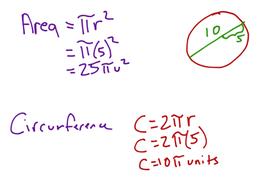 Area = πr²
= π(5)²
= 25πu²
10
5
Circumference
C = 2πr
C = 2π(5)
C = 10π units